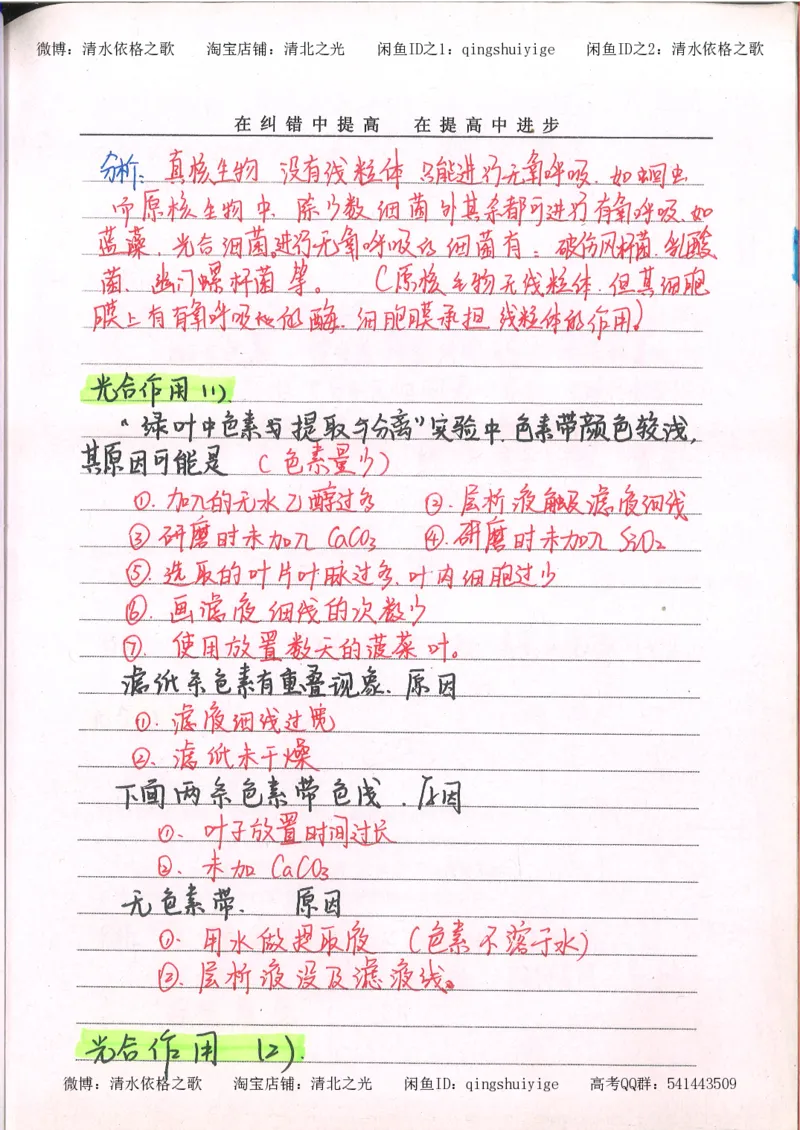 微博：清水依格之歌 淘宝店铺：清北之光 闲鱼ID之1：qingshuiyige 闲鱼ID之2：清水依格之歌
在纠错中提高 在提高中进步
分析：真核生物 没有线粒体 只能进行无氧呼吸.如蛔虫
而原核生物中.除少数细菌外其余都可进行有氧呼吸.如
蓝藻，光合细菌。进行无氧呼吸的细菌有：破伤风杆菌.乳酸
菌、幽门螺杆菌 等。（原核生物无线粒体.但其细胞
膜上有有氧呼吸的酶.细胞膜承担 线粒体的作用）
光合作用(1)
“绿叶中色素与提取与分离”实验中.色素带颜色较浅，
其原因可能是（色素量少）
①.加入的无水乙醇过多 ②.层析液触及滤液细线
③研磨时未加入CaCO3 ④.研磨时未加入SiO2
⑤.选取的叶片叶脉过多.叶肉细胞过少
⑥.画滤液细线的次数少
⑦.使用放置数天的菠菜叶。
滤纸条色素有重叠现象.原因
①.滤液细线过宽
②.滤纸未干燥
下面两条色素带色浅.原因
①.叶子放置时间过长
②.未加CaCO3
无色素带.原因
①.用水做提取液（色素不溶于水）
②.层析液没及滤液线。
光合作用(2).
微博：清水依格之歌 淘宝店铺：清北之光 闲鱼ID：qingshuiyige 高考QQ群：541443509